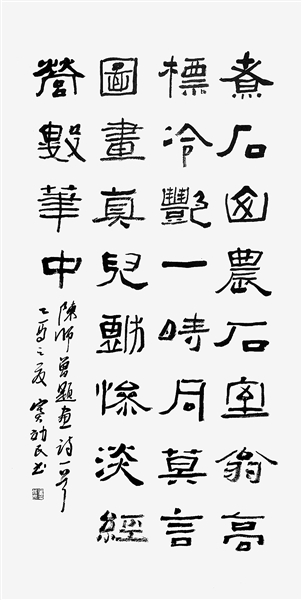 煮石農石室翁高
標冷豔一時同莫言
圖畫真兒戲慘淡經
營數筆中
陳師曾題畫詩一首
乙酉之夏民书